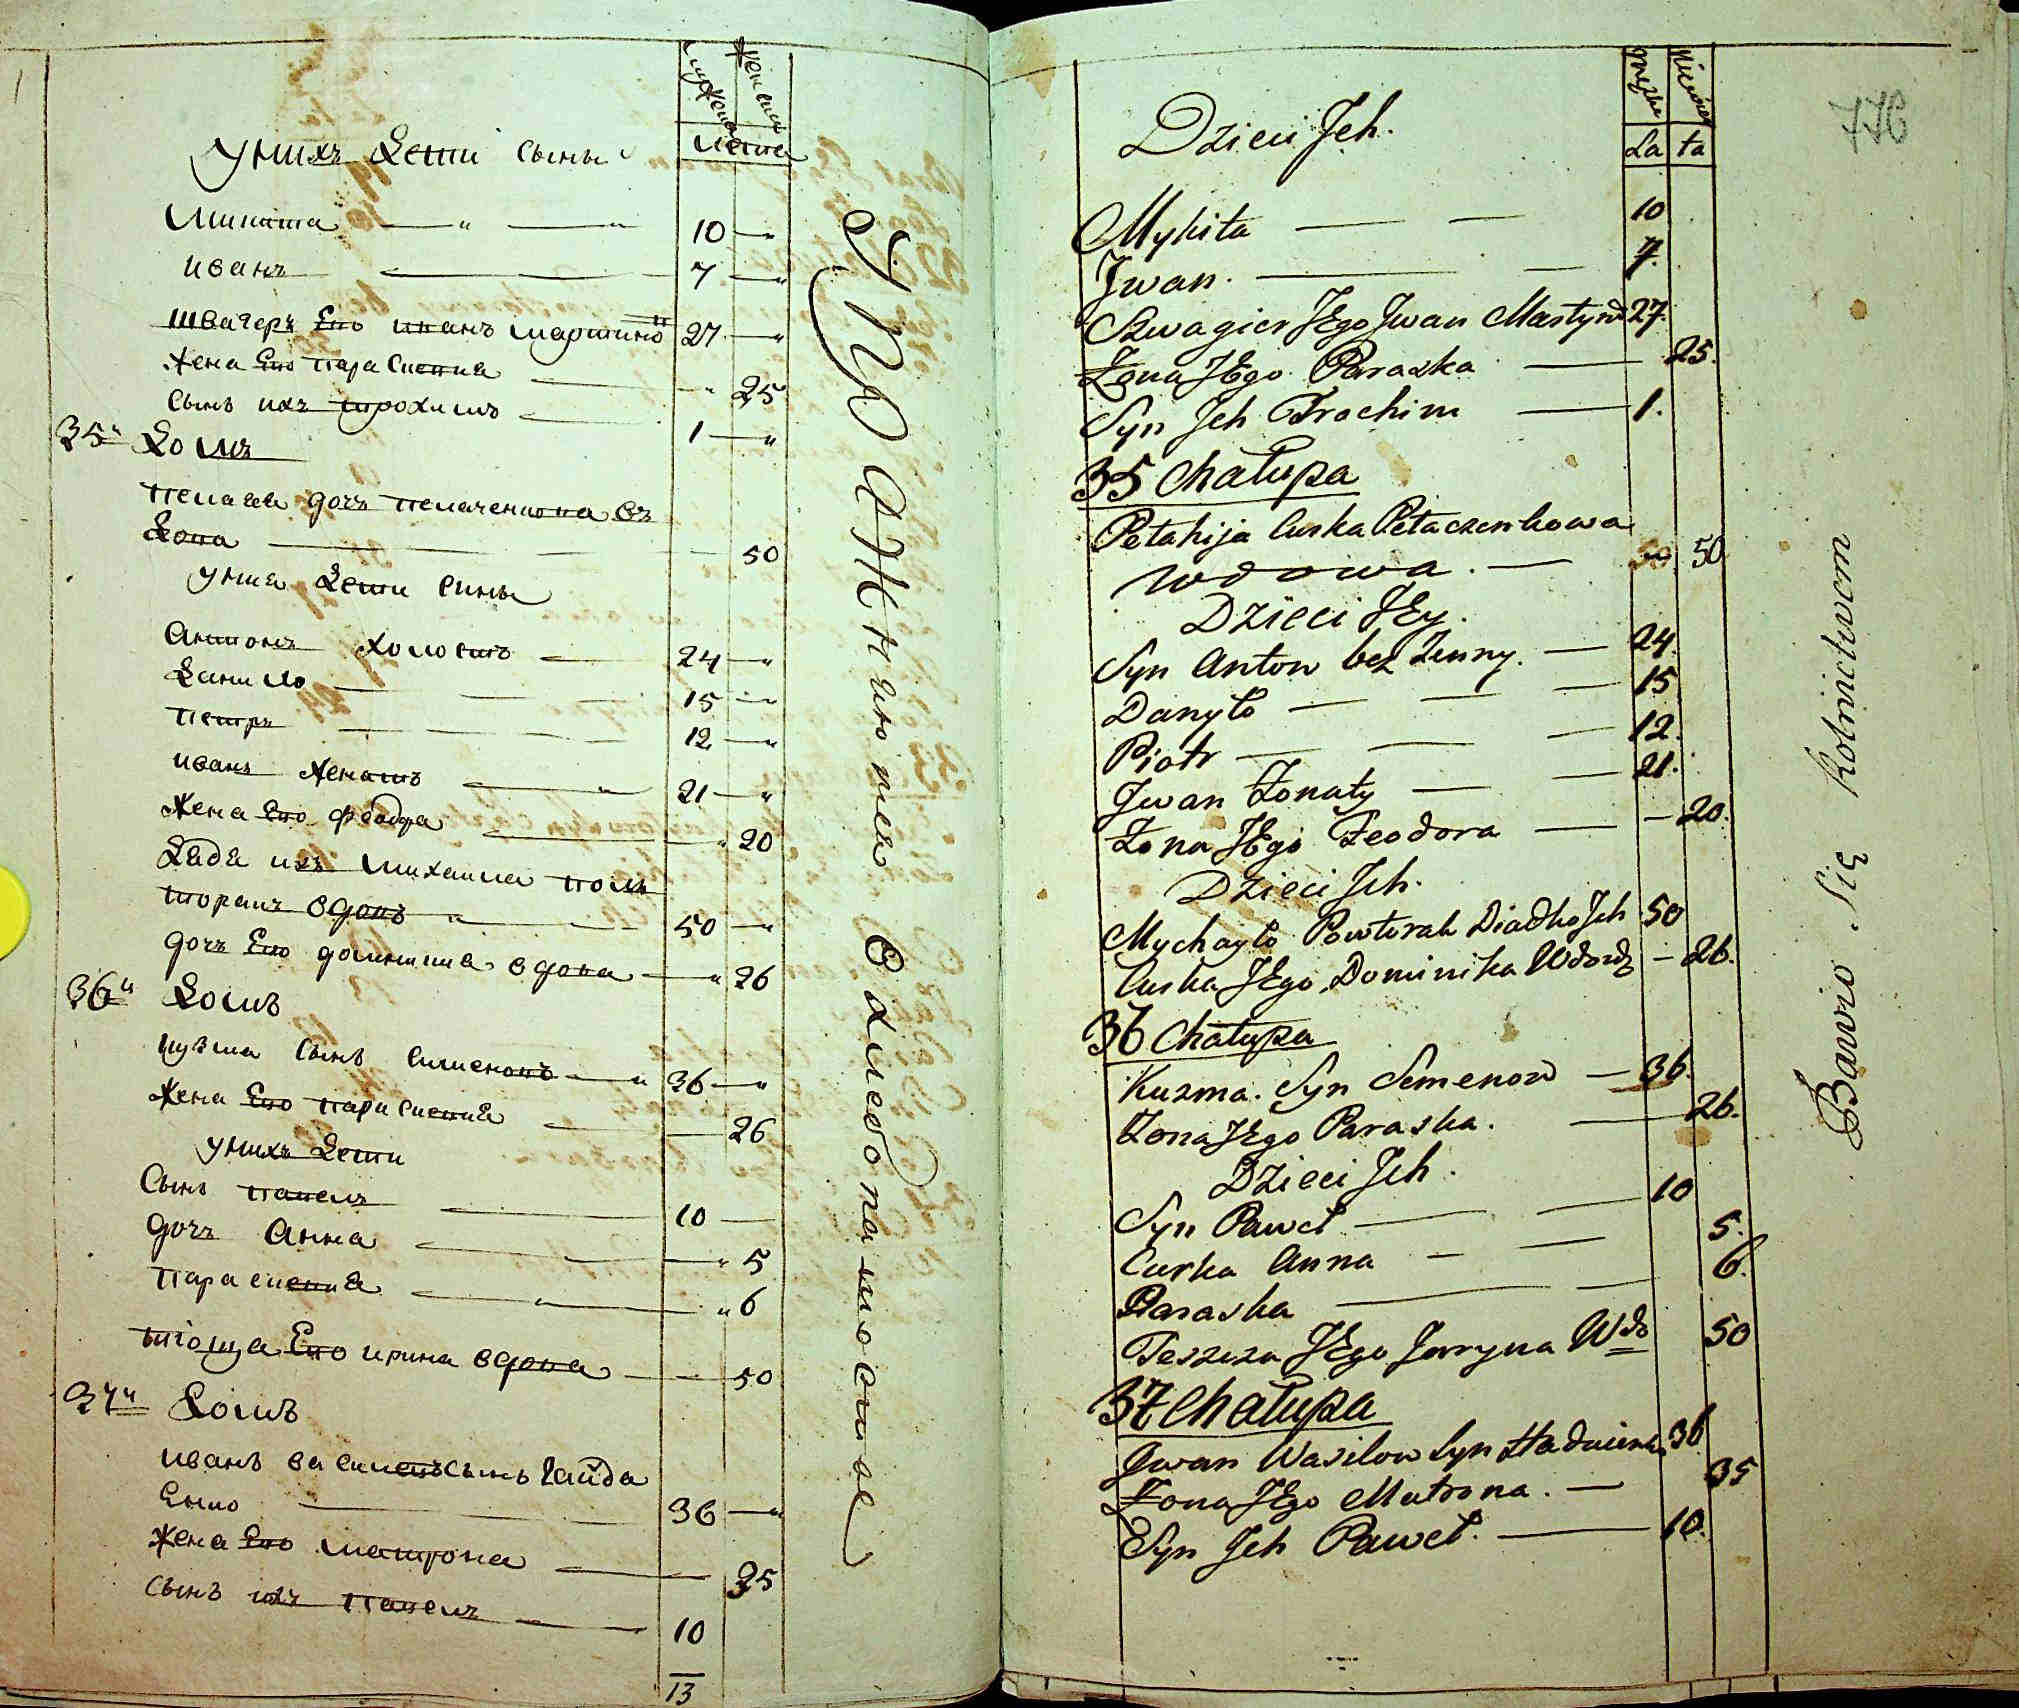 мужеска
женска
лета
У нихъ дети сыны
Микита 10
Иванъ 7
швагеръ Его иванъ мартиновъ 27
жена Его параскевия 25
сынъ ихъ трохимъ 1
35й Домъ
Пелагея дочъ пелаченкова въ
дова 50
у нея дети сины
Антонъ холостъ 24
Данило 15
Петръ 12
иванъ женатъ 21
жена Его феодора 20
дядя ихъ михаила пов
торакъ вдовъ 50
дочъ Его доминика вдова 26
36й Домъ
кузма сынъ сименовъ 36
жена Его параскевия 26
у нихъ дети
Сынъ павелъ 10
дочъ Анна 5
параскевия 6
тіоща Его ирина вдова 50
37й Домъ
иванъ василевъ сынъ гайда
Енко 36
жена Его матрона 35
сынъ ихъ павелъ 10
13
Упражняются в хлебопашостве
776
męzka
La ta
Dzieci Jch.
Mykita 10
Jwan. 7.
Szwagier JEgo Jwan Martynów 27.
Żona JEgo Paraska 25.
Syn Jch Trochim 1.
35 Chałupa
Pełahija Curka Pełaczenkowa
wdowa. 50 50
Dzieci JEy.
Syn Anton bez Zenny. 24
Danyło 15
Piotr 12.
Jwan Żonaty 21.
Żona JEgo Teodora 20.
Dzieci Jch.
Mychayło Powtorak Diadko Jch 50
Curka JEgo Dominika Wdowa 26.
36 Chałupa
Kuzma. Syn Semenow 36.
Żona JEgo Paraska. 26.
Dzieci Jch.
Syn Paweł 10
Curka Anna 5.
Paraska 6.
Teszcza JEgo Jaryna Wdo 50
37 Chałupa
Jwan Wasilow Syn 36
Żona JEgo Matrona. 35
Syn Jch Paweł. 10.
Bawio Się Rolnictwem